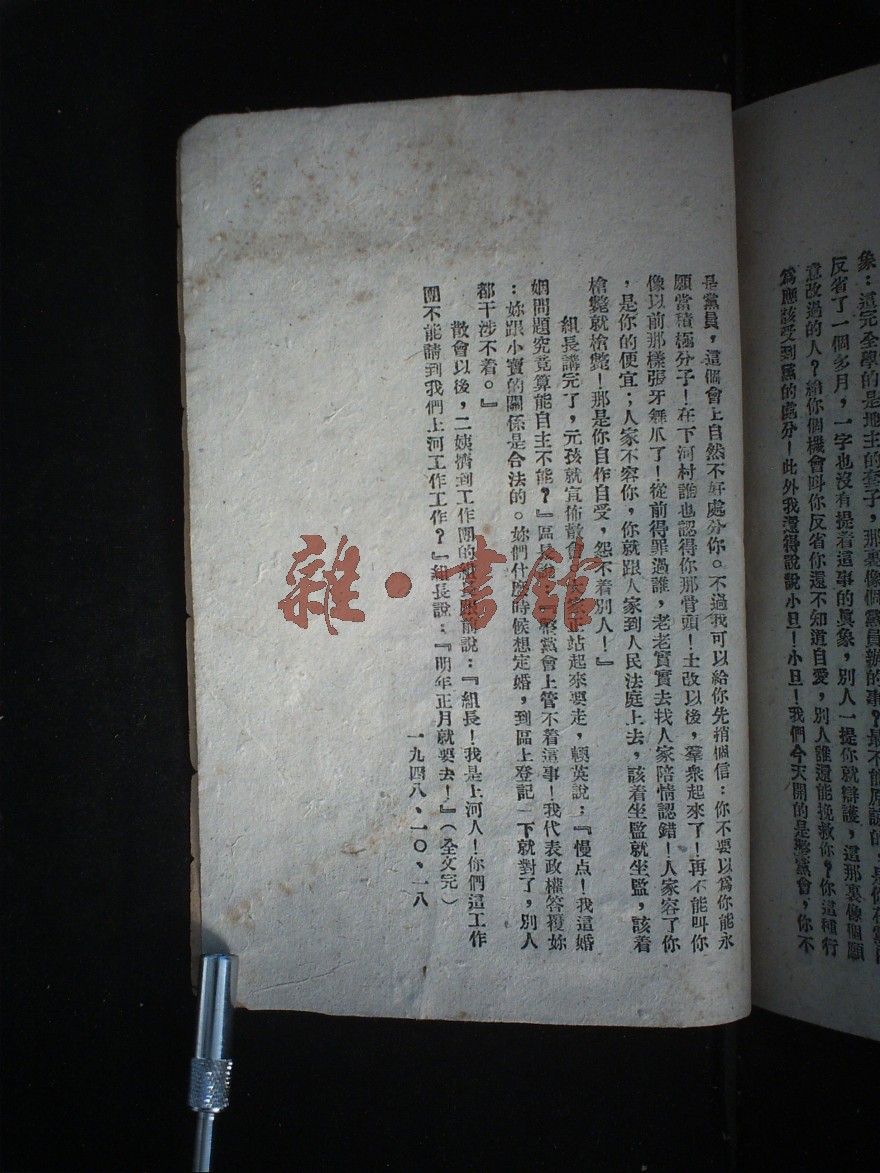 象：這完全學的是地主的套子，那裏像個黨員辦的事？最不能原諒的，是你在黨內
反省了一個多月，一字也沒有提着這事的眞象，別人一提你就辯護，這那裏像個願
意改過的人？給你個機會叫你反省你還不知道自愛，別人誰還能挽救你？你這種行
爲應該受到黨的處分！此外我還得說說小旦！小旦！我們今天開的是整黨會，你不
是黨員，這個會上自然不好處分你。不過我可以給你先捎個信：你不要以爲你能永
願當積極分子！在下河村誰也認得你那骨頭！土改以後，羣衆起來了！再不能叫你
像以前那樣張牙舞爪了！從前得罪過誰，老老實實去找人家陪情認錯！人家容了你
，是你的便宜；人家不容你，你就跟人家到人民法庭上去，該着坐監就坐監，該着
槍斃就槍斃！那是你自作自受，怨不着別人！』
組長講完了，元孩就宣佈散會。大家正站起來要走，輭英說：『慢点！我這婚
姻問題究竟算能自主不能？』區長說：整黨會上管不着這事！我代表政權答覆妳
：妳跟小寶的關係是合法的。妳們什麽時候想定婚，到區上登記一下就對了，別人
都干涉不着。』
散會以後，二姨擠到工作團的組長跟前說：『組長！我是上河人！你們這工作
團不能請到我們上河工作工作？』組長說：『明年正月就要去！』（全文完）
一九四八、一〇、一八
雜·書館